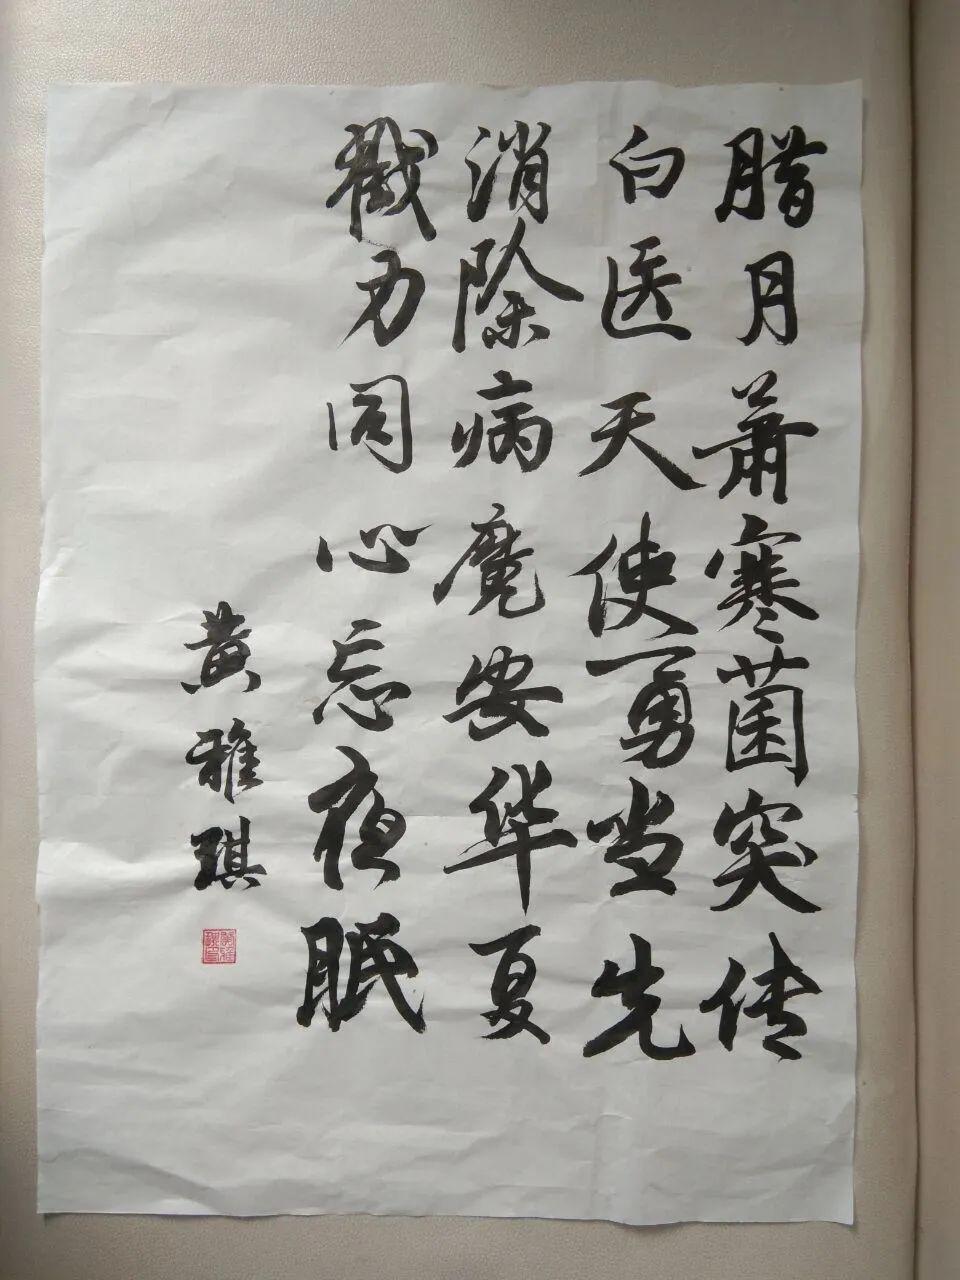 腊月萧寒菌突传
白医天使勇当先
消除病魔安华夏
戮力同心忘夜眠
黄雅琪